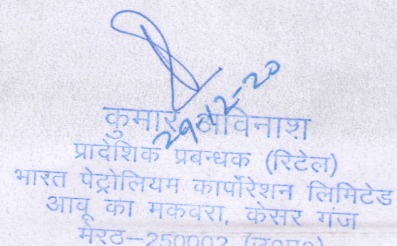 29-12-20
कुमार अविनाश
प्रादेशिक प्रबन्धक (रिटेल)
भारत पेट्रोलियम कार्पोरेशन लिमिटेड
आबू का मकबरा, केसर गंज
मेरठ–250002 (उ०प्र०)